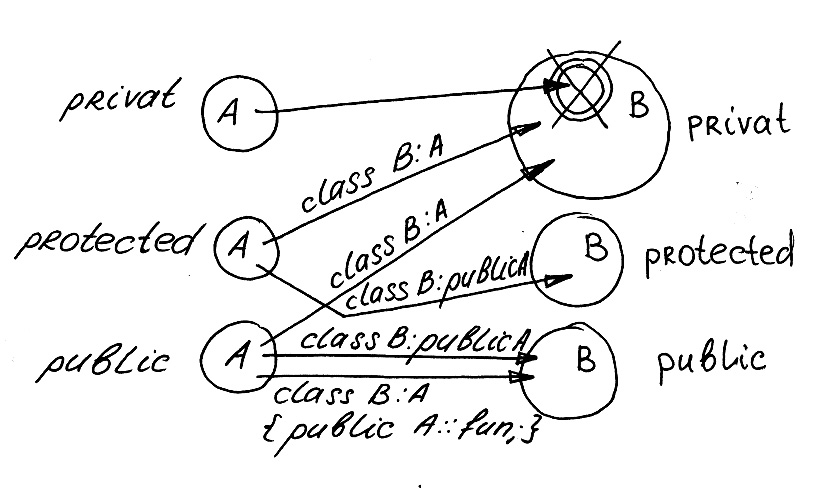 privat A B privat
class B:A
protected A class B:A B protected
class B:public A
public A class B:public A B public
class B:A
{ public A::fun; }